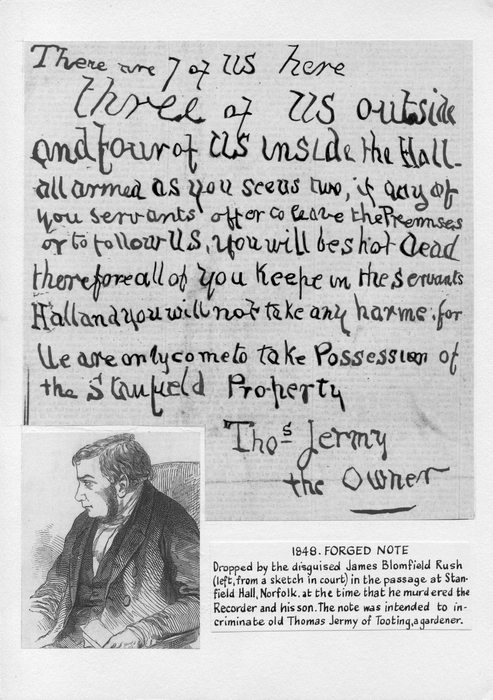 There are 7 of US here
three of US outside
and four of US inside the Hall-
all armed as you see us two, if any of
you servants offer to leave the Premises
or to follow US, you will be shot dead
therefore all of you Keepe in the Servants
Hall and you will not take any harme for
We are only come to take Possession of
the Stanfield Property
Thos Jermy
the Owner
1848. FORGED NOTE
Dropped by the disguised James Blomfield Rush
(left, from a sketch in court) in the passage at Stan-
field Hall, Norfolk. at the time that he murdered the
Recorder and his son. The note was intended to in-
criminate old Thomas Jermy of Tooting, a gardener.